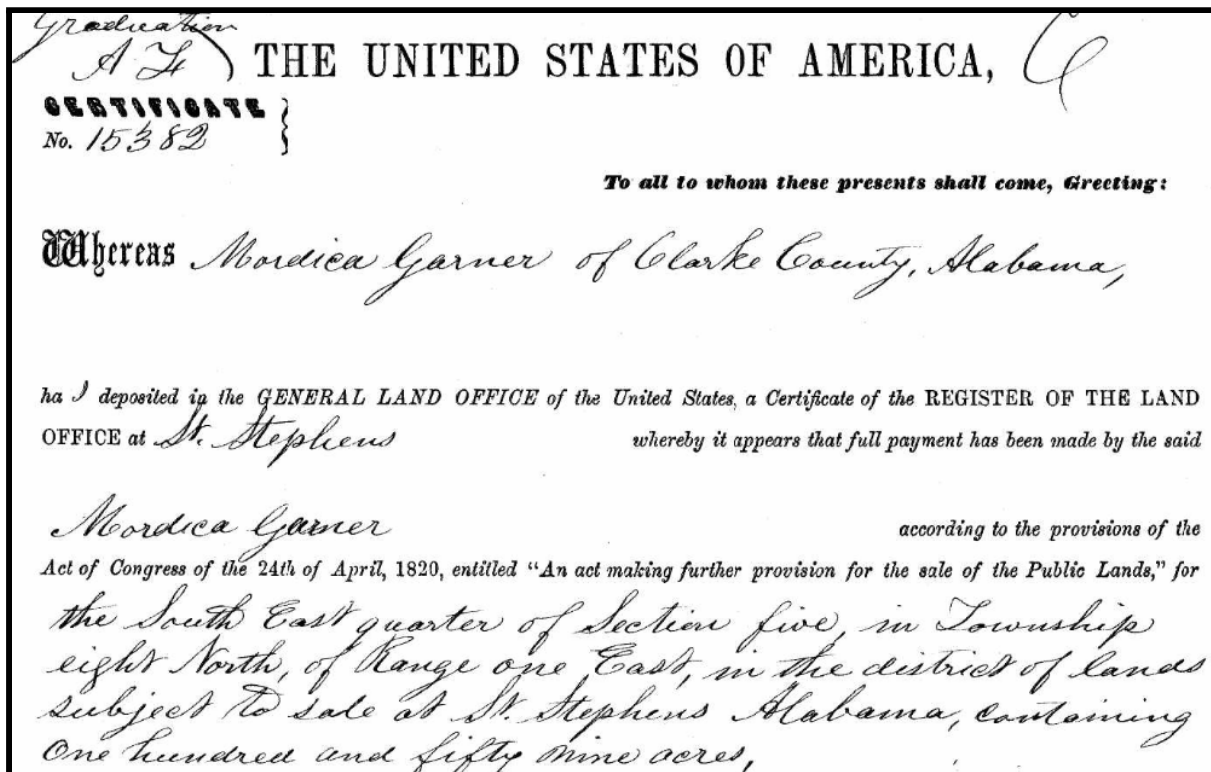 Graduation
THE UNITED STATES OF AMERICA,
CERTIFICATE
No. 15382
To all to whom these presents shall come, Greeting:
Whereas Mordica Garner of Clarke County, Alabama,
ha s deposited in the GENERAL LAND OFFICE of the United States, a Certificate of the REGISTER OF THE LAND
OFFICE at St. Stephens whereby it appears that full payment has been made by the said
Mordica Garner according to the provisions of the
Act of Congress of the 24th of April, 1820, entitled "An act making further provision for the sale of the Public Lands," for
the South East quarter of Section five, in Township
eight North, of Range one East, in the district of lands
subject to sale at St. Stephens Alabama, containing
One hundred and fifty nine acres,